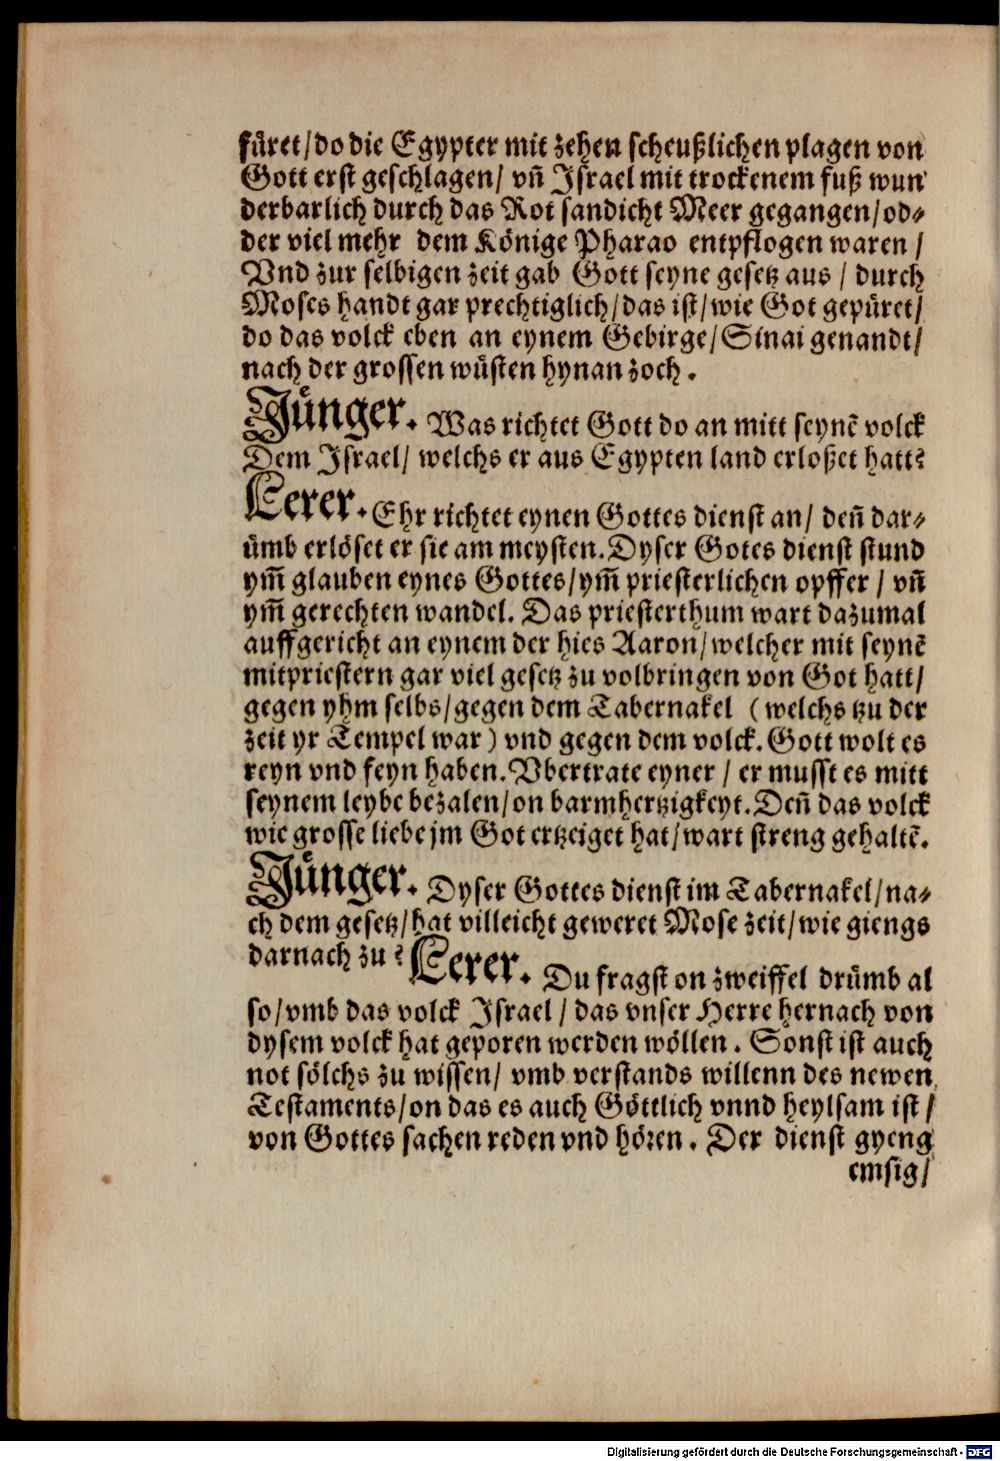 fůret/do die Egypter mit zehen scheußlichen plagen von
Gott erst geschlagen/ vn̄ Israel mit trockenem fuß wun
derbarlich durch das Rot sandicht Meer gegangen/od⸗
der viel mehr dem Könige Pharao entpflogen waren /
Vnd zur selbigen zeit gab Gott seyne gesetz aus / durch
Moses handt gar prechtiglich/das ist/wie Got gepůret/
do das volck eben an eynem Gebirge/Sinai genandt/
nach der grossen wůsten hynan zoch.
Jůnger. Was richtet Gott do an mitt seynē volck
Dem Israel/ welchs er aus Egypten land erloßet hatt?
Lerer. Ehr richtet eynen Gottes dienst an/ den̄ dar⸗
ůmb erlöset er sie am meysten. Dyser Gotes dienst stund
ym̄ glauben eynes Gottes/ym̄ priesterlichen opffer / vn̄
ym̄ gerechten wandel. Das priesterthum wart dazumal
auffgericht an eynem der hies Aaron/welcher mit seynē
mitpriestern gar viel gesetz zu volbringen von Got hatt/
gegen yhm selbs/gegen dem Tabernakel (welchs tzu der
zeit yr Tempel war) vnd gegen dem volck. Gott wolt es
reyn vnd feyn haben. Vbertrate eyner / er musst es mitt
seynem leybe bezalen/on barmhertzigkeyt. Den̄ das volck
wie grosse liebe jm Got ertzeiget hat/wart streng gehaltē.
Jůnger. Dyser Gottes dienst im Tabernakel/na⸗
ch dem gesetz/hat villeicht geweret Mose zeit/wie giengs
darnach zu? Lerer. Du fragst on zweiffel drůmb al
so/vmb das volck Israel / das vnser Herre hernach von
dysem volck hat geporen werden wöllen. Sonst ist auch
not sölchs zu wissen/ vmb verstands willenn des newen
Testaments/on das es auch Göttlich vnnd heylsam ist /
von Gottes sachen reden vnd hören. Der dienst gyeng
emsig/
Digitalisierung gefördert durch die Deutsche Forschungsgemeinschaft - DFG